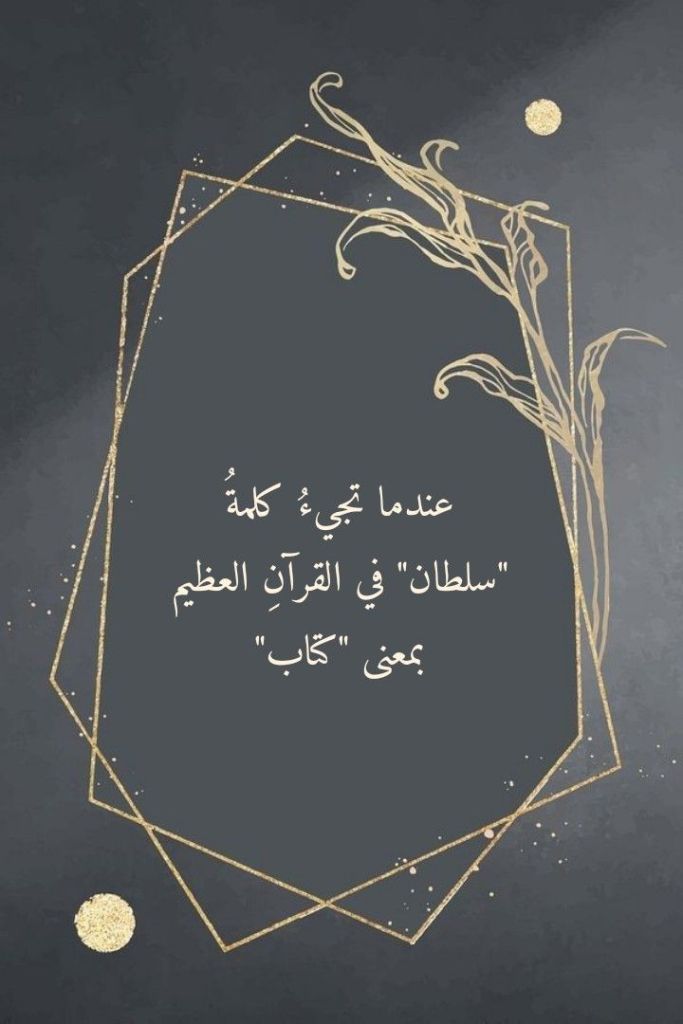 عندما تجيءُ كلمةُ
"سلطان" في القرآنِ العظيم
بمعنى "كتاب"